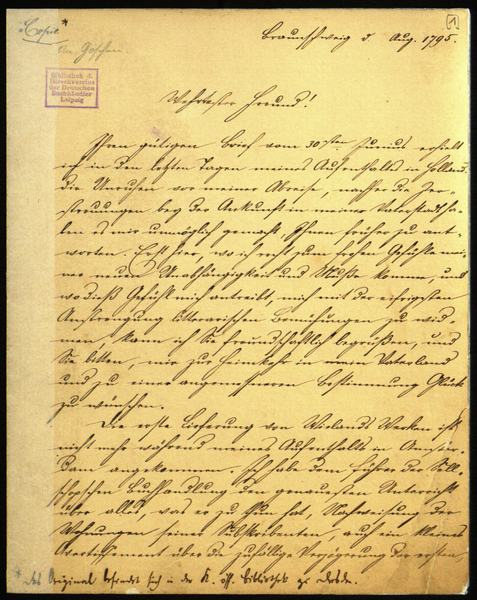 "Copie"*
An Göschen
1
Bibliothek d.
Börsenvereins
der Deutschen
Buchhändler
Leipzig
Braunschweig d. Aug. 1795.
Wehrtester Freund!
Ihren gütigen Brief vom 30sten Junius erhielt
ich in den letzten Tagen meines Aufenthaltes in Holland.
Die Unruhen vor meiner Abreise, nachher die Zer-
streuungen bey der Ankunft in meiner Vaterstadt ha-
ben es mir unmöglich gemacht, Ihnen früher zu ant-
worten. Erst hier, wo ich recht zum frohen Gefühle mei-
ner neuen Unabhängigkeit und Muße komme, und
wo dieß Gefühl mich antreibt, mich mit der eifrigsten
Anstrengung litterarischen Bemühungen zu wid-
men, kann ich Sie freundschaftlich begrüßen, und
Sie bitten, mir zur Heimkehr in mein Vaterland
und zu einer angenehmeren Bestimmung Glück
zu wünschen.
Die erste Lieferung von Wielands Werken ist
nicht mehr während meines Aufenthalts in Amster-
dam angekommen. Ich habe dem Führer der
Buchhandlung den genauesten Unterricht
über alles, was er zu thun hat, Nachweisung der
Wohnungen seiner Subskribenten, auch ein kleines
Avertissement über die zufällige Verzögerung der ersten
* Das Original befindet sich in der K. öff. Bibliothek zu Dresden.